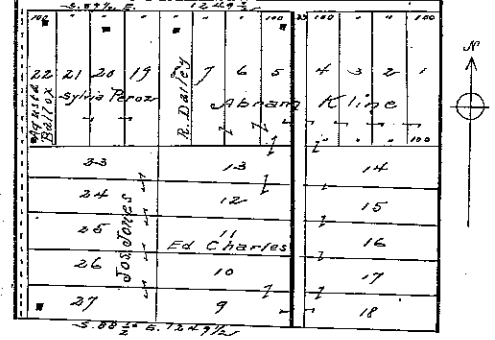 S. 89¾ E. " " 1249½
100 " " " " " " 100 33 100 " " 100
22 21 20 19 8 7 6 5 4 3 2 1
Agusta Ballox
Sylvia Peroz
R. Dailey
Abram Kline
" " 100
23 13 14
24 12 15
25 11 16
Jos Jones
Ed Charles
26 10 17
27 9 18
S. 88½ E. 1249½
N